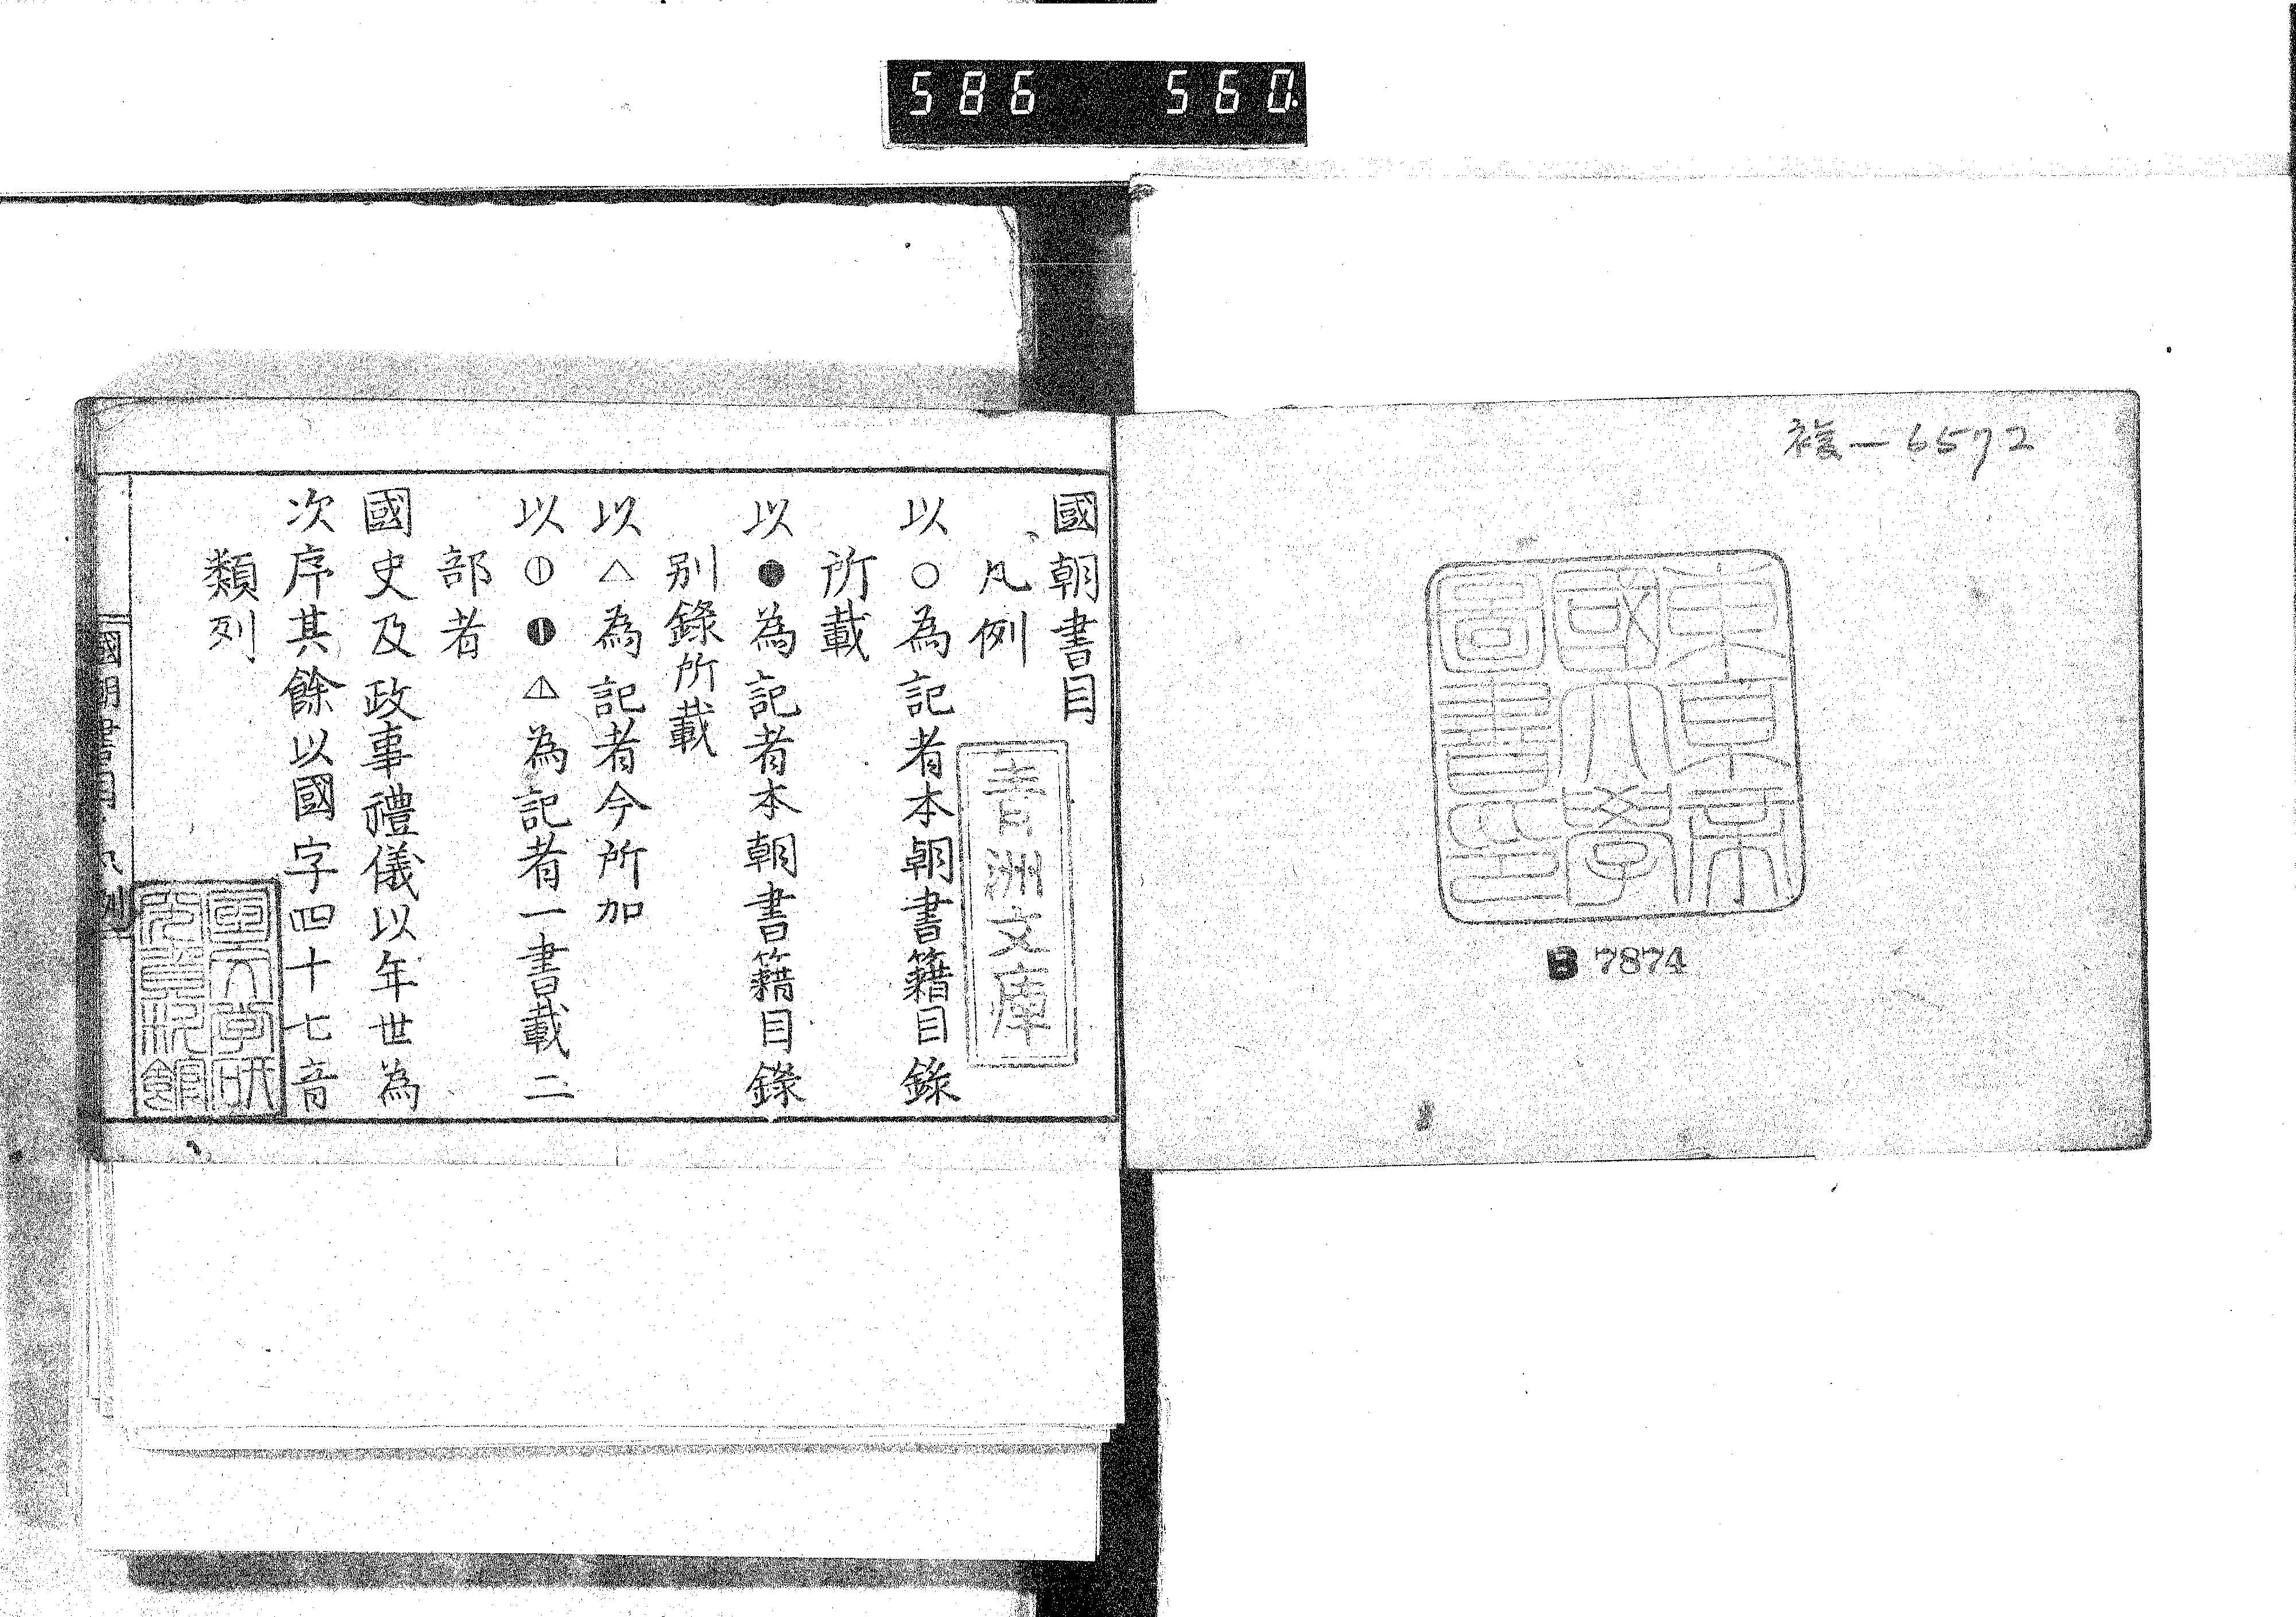 586 560.
複一6572
東京帝
國大學
圖書印
B 7874
國朝書目
凡例
青洲文庫
以○為記者本朝書籍目錄
所載
以●為記者本朝書籍目錄
别錄所載
以△為記者今所加
以⦶◐◭為記者一書載二
部者
國史及政事禮儀以年世為
次序其餘以國字四十七音
類列
國朝書目 凡例